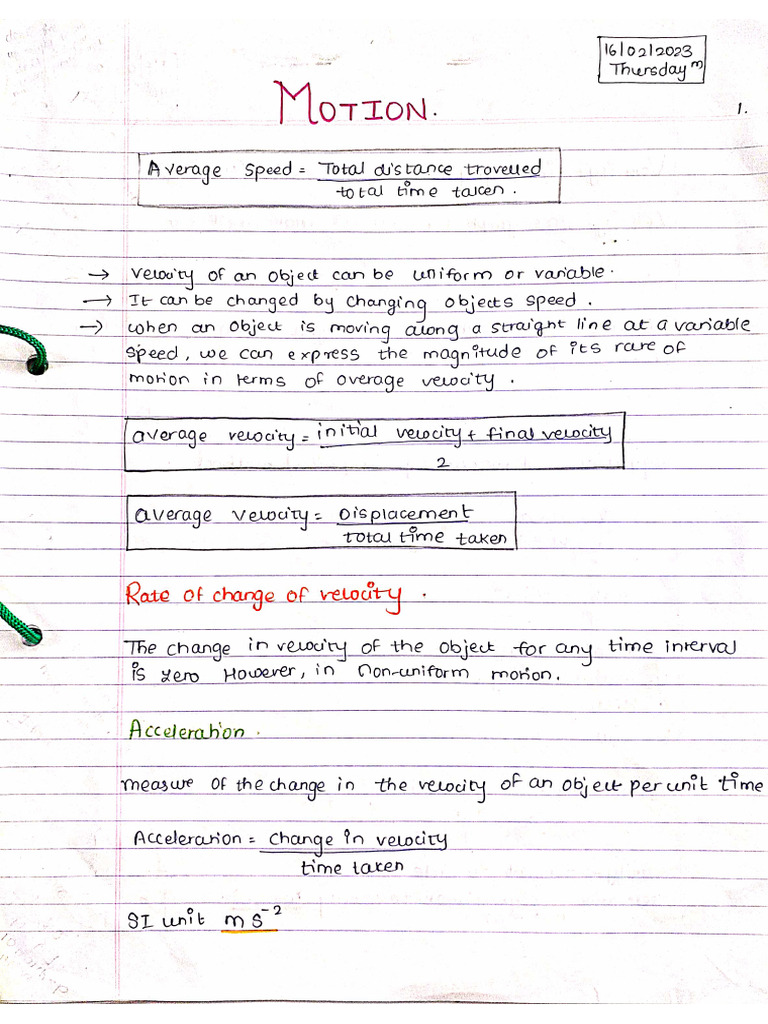 16/02/2023
Thursday
MOTION.
1.
Average Speed = Total distance travelled
total time taken.
→ Velocity of an object can be uniform or variable.
→ It can be changed by changing objects speed.
→ when an object is moving along a straight line at a variable
speed, we can express the magnitude of its rate of
motion in terms of average velocity.
average velocity = initial velocity + final velocity
2
average velocity = Displacement
total time taken
Rate of change of velocity.
The change in velocity of the object for any time interval
is zero However, in Non-uniform motion.
Acceleration.
measure of the change in the velocity of an object per unit time
Acceleration = change in velocity
time taken
SI unit m s⁻²